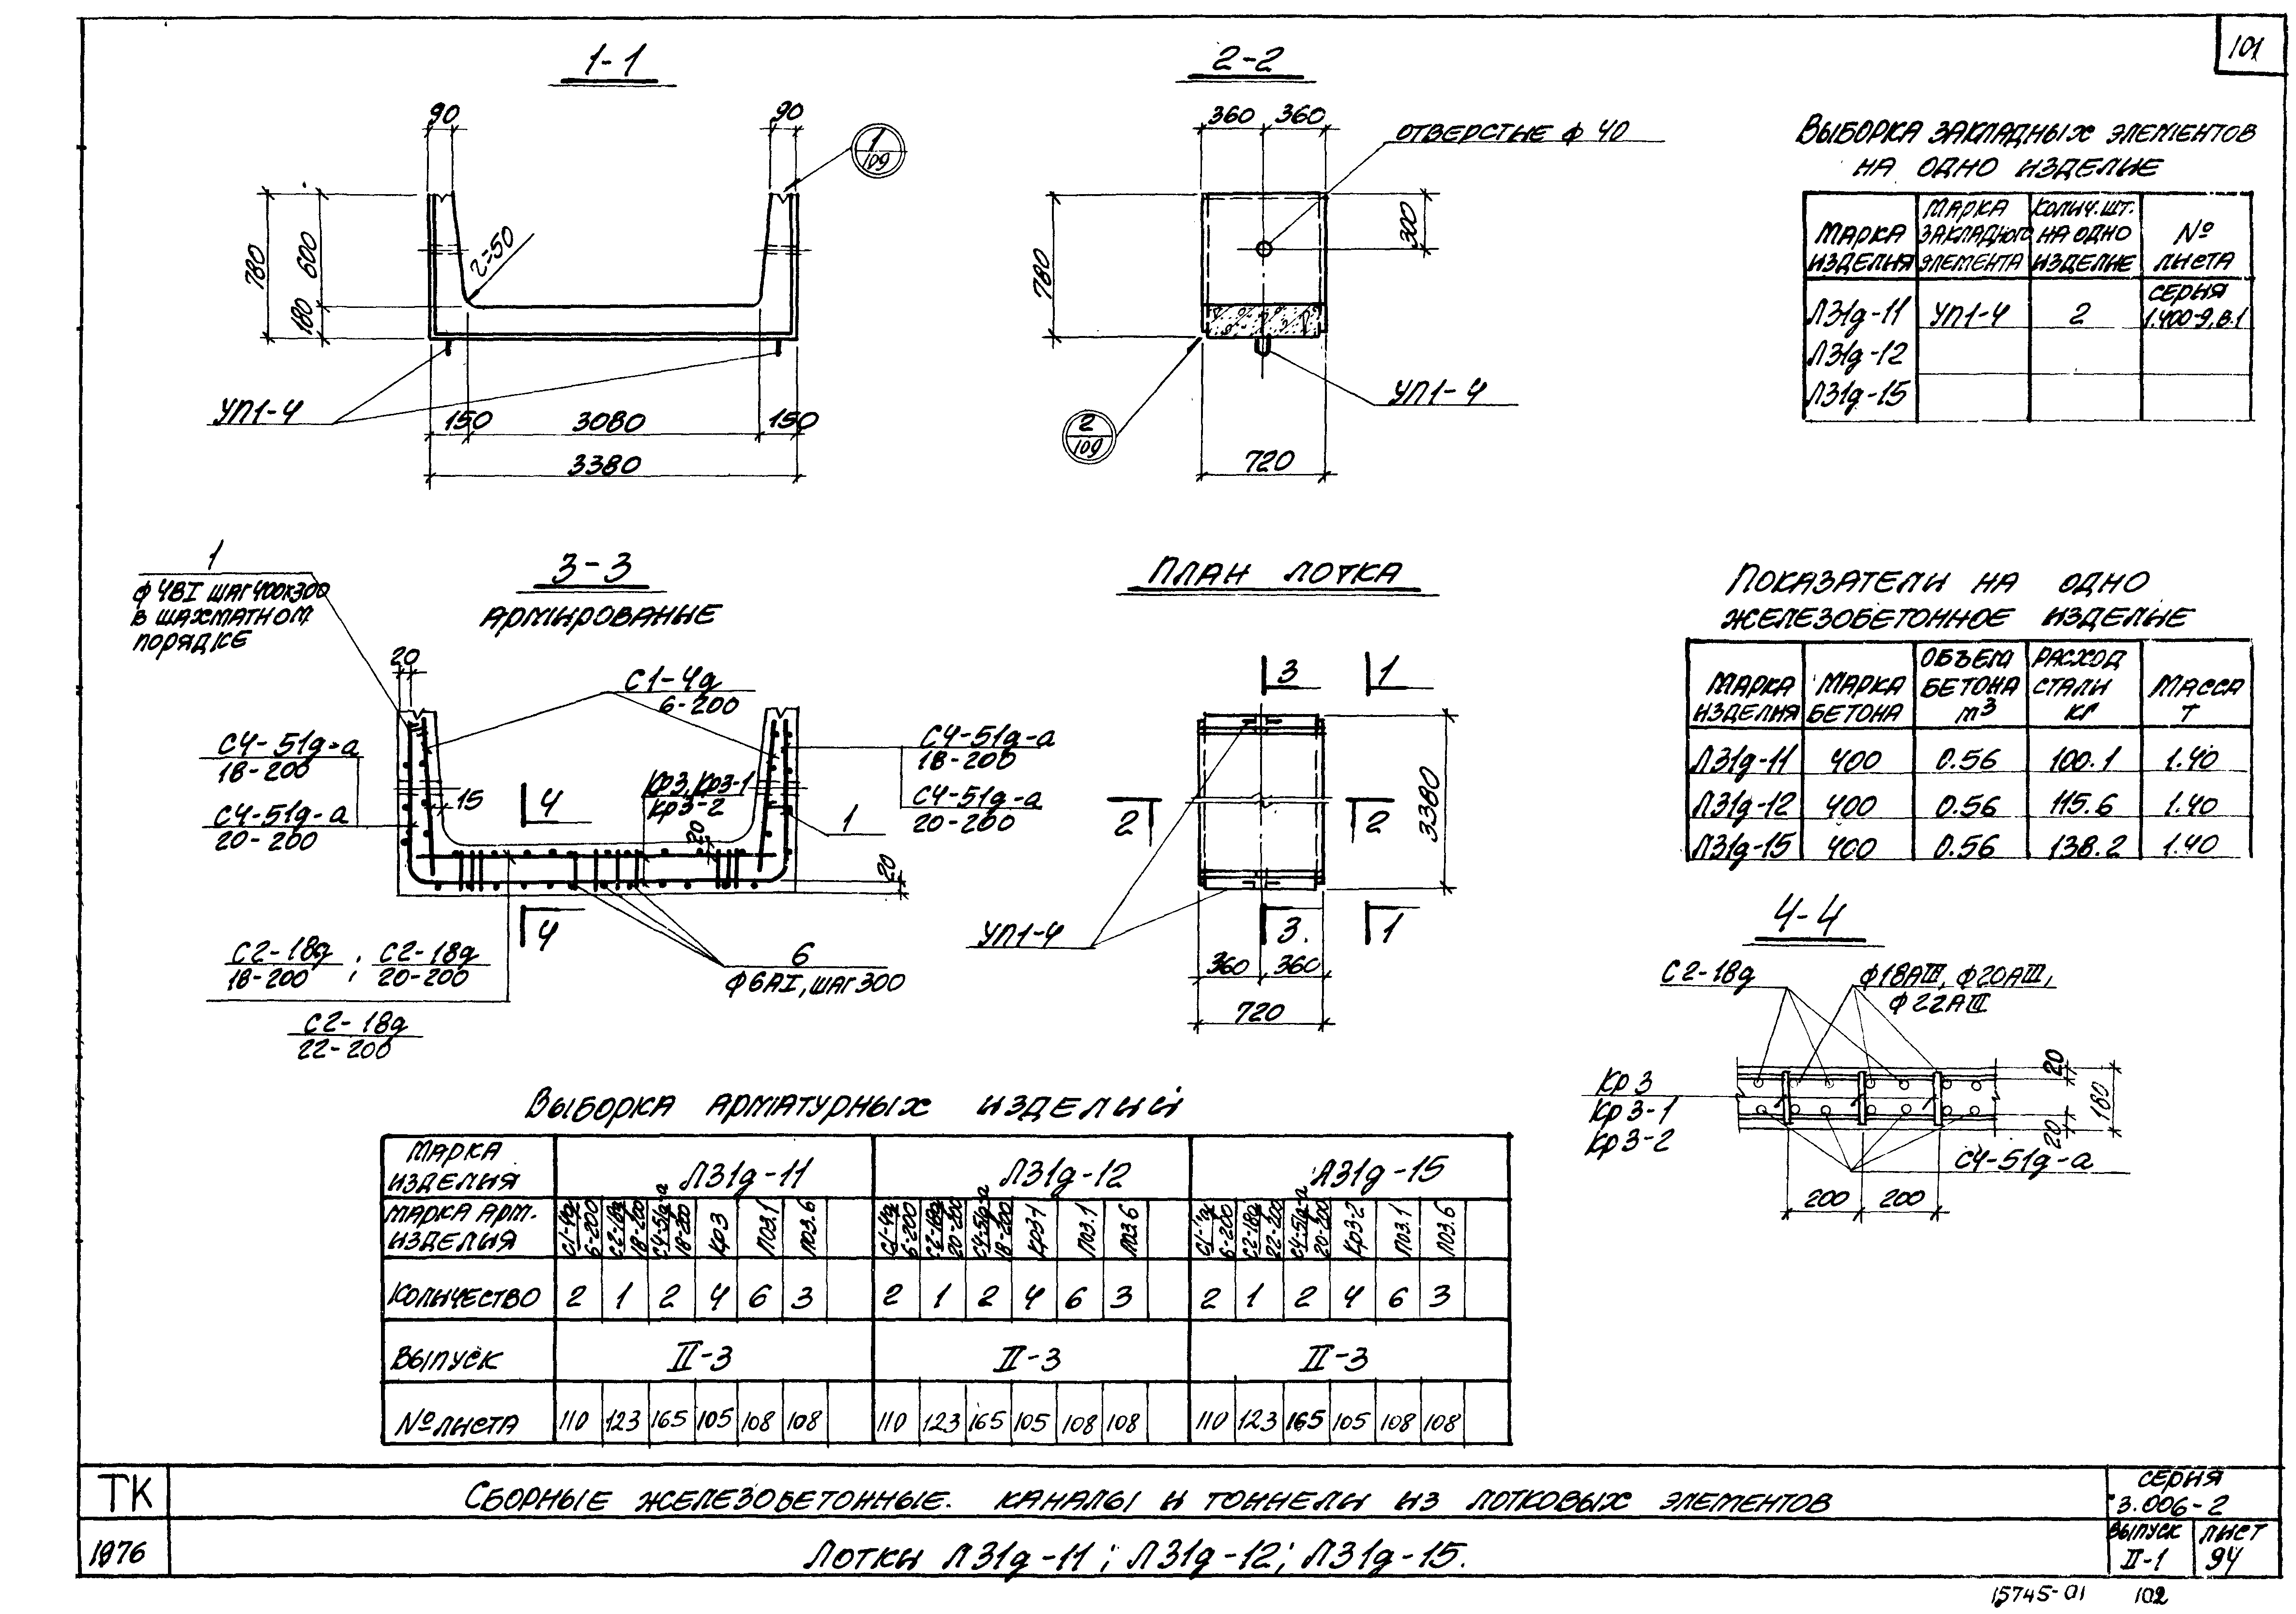 101
1-1
90
90
1
109
780
600
180
r=50
УП1-4
150
3080
150
3380
2-2
360
360
ОТВЕРСТИЕ ф 40
780
300
УП1-4
2
109
720
ВЫБОРКА ЗАКЛАДНЫХ ЭЛЕМЕНТОВ
НА ОДНО ИЗДЕЛИЕ
МАРКА ИЗДЕЛИЯ | МАРКА ЗАКЛАДНОГО ЭЛЕМЕНТА | КОЛИЧ. ШТ. НА ОДНО ИЗДЕЛИЕ | № ЛИСТА
Л31д-11 | УП1-4 | 2 | СЕРИЯ 1.400-9, В.1
Л31д-12
Л31д-15
1
ф4ВI ШАГ 400х300
В ШАХМАТНОМ
ПОРЯДКЕ
3-3
АРМИРОВАНИЕ
20
С1-4д
6-200
С4-51д-а
18-200
С4-51д-а
20-200
15
4
Кр3, Кр3-1
Кр3-2
20
С4-51д-а
18-200
С4-51д-а
20-200
1
20
4
С2-18д
18-200
;
С2-18д
20-200
С2-18д
22-200
6
ф6АI, ШАГ 300
ПЛАН ЛОТКА
3
1
2
2
3380
УП1-4
3.
1
360
360
720
ПОКАЗАТЕЛИ НА ОДНО
ЖЕЛЕЗОБЕТОННОЕ ИЗДЕЛИЕ
МАРКА ИЗДЕЛИЯ | МАРКА БЕТОНА | ОБЪЕМ БЕТОНА м3 | РАСХОД СТАЛИ КГ | МАССА Т
Л31д-11 | 400 | 0.56 | 100.1 | 1.40
Л31д-12 | 400 | 0.56 | 115.6 | 1.40
Л31д-15 | 400 | 0.56 | 138.2 | 1.40
4-4
С2-18д
ф18АIII, ф20АIII,
ф22АIII
Кр3
Кр3-1
Кр3-2
20
180
20
С4-51д-а
200
200
ВЫБОРКА АРМАТУРНЫХ ИЗДЕЛИЙ
МАРКА ИЗДЕЛИЯ | Л31д-11 | Л31д-12 | Л31д-15
МАРКА АРМ. ИЗДЕЛИЯ | С1-4д 6-200 | С2-18д 18-200 | С4-51д-а 18-200 | Кр3 | ПОЗ.1 | ПОЗ.6 | С1-4д 6-200 | С2-18д 20-200 | С4-51д-а 18-200 | Кр3-1 | ПОЗ.1 | ПОЗ.6 | С1-4д 6-200 | С2-18д 22-200 | С4-51д-а 20-200 | Кр3-2 | ПОЗ.1 | ПОЗ.6
КОЛИЧЕСТВО | 2 | 1 | 2 | 4 | 6 | 3 | 2 | 1 | 2 | 4 | 6 | 3 | 2 | 1 | 2 | 4 | 6 | 3
ВЫПУСК | II-3 | II-3 | II-3
№ ЛИСТА | 110 | 123 | 165 | 105 | 108 | 108 | 110 | 123 | 165 | 105 | 108 | 108 | 110 | 123 | 165 | 105 | 108 | 108
ТК
1976
СБОРНЫЕ ЖЕЛЕЗОБЕТОННЫЕ. КАНАЛЫ И ТОННЕЛИ ИЗ ЛОТКОВЫХ ЭЛЕМЕНТОВ
ЛОТКИ Л31д-11; Л31д-12; Л31д-15.
СЕРИЯ
3.006-2
ВЫПУСК
II-1
ЛИСТ
94
15745-01
102